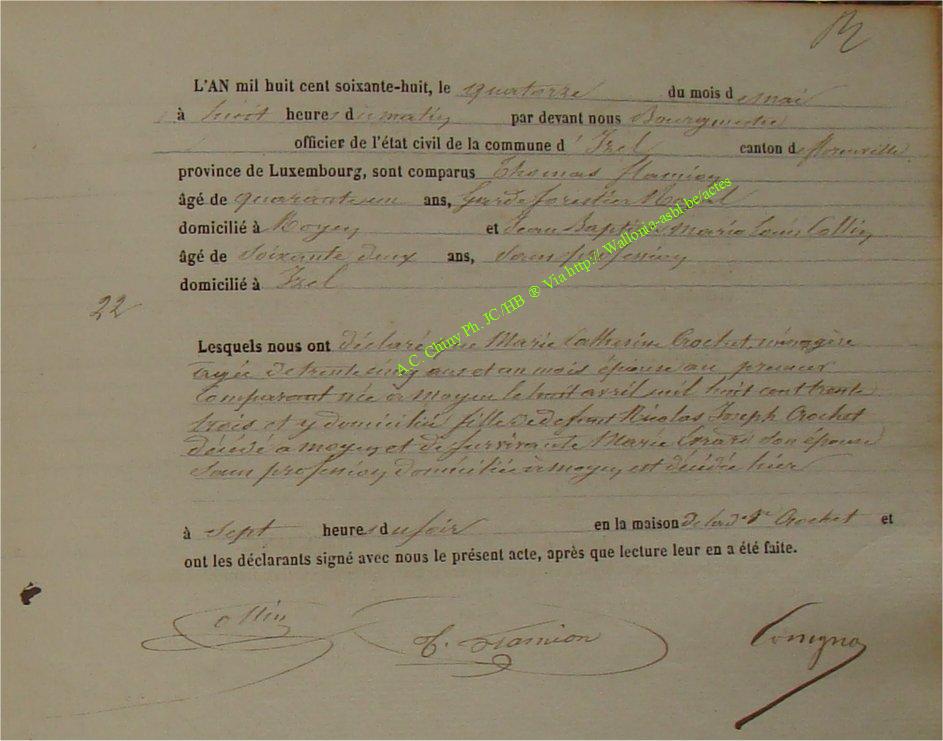 L'AN mil huit cent soixante-huit, le quatorze du mois de mai
à huit heures du matin par devant nous Bourgmestre
officier de l'état civil de la commune d' Izel canton de florenville
province de Luxembourg, sont comparus Thomas
âgé de quarante un ans, Garde forestier
domicilié à Moyen et Jean Baptiste Marie Louis Collin
âgé de Soixante deux ans, Sans profession
domicilié à Izel
22
Lesquels nous ont déclaré que Marie Catherine Crochet, ménagère
agée de trente cinq ans et un mois épouse au premier
Comparant née à moyen le huit avril mil huit cent trente
trois et y domiciliée fille de defunt Nicolas Joseph Crochet
décédé a moyen et de survivante Marie son épouse
Sans profession domiciliée à moyen est décédée hier
à Sept heures du soir en la maison de lad. Crochet et
ont les déclarants signé avec nous le présent acte, après que lecture leur en a été faite.
A.C. Chiny Ph. JC/HB ® Via http:// Wallonia-asbl.be/actes